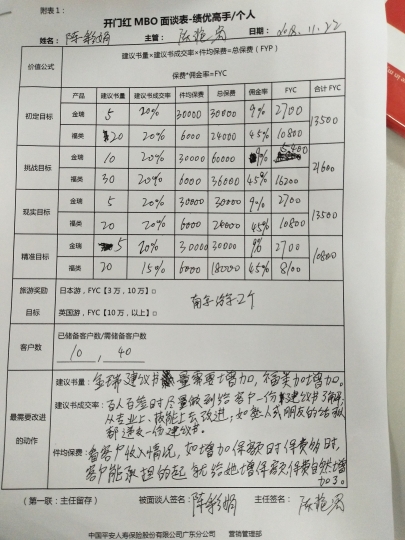 附表1：
开门红 MBO 面谈表-绩优高手/个人
姓名： 陈彩娟 主管： 日期： 2018.11.22
价值公式 建议书量×建议书成交率×件均保费=总保费（FYP）
保费*佣金率=FYC
产品 建议书量 建议书成交率 件均保费 总保费 佣金率 FYC 合计 FYC
初定目标 金瑞 5 20% 30000 30000 9% 2700 13500
福类 20 20% 6000 24000 45% 10800
挑战目标 金瑞 10 20% 30000 60000 9% 5400 21600
福类 30 20% 6000 36000 45% 16200
现实目标 金瑞 5 20% 30000 30000 9% 2700 13500
福类 20 20% 6000 24000 45% 10800
精准目标 金瑞 5 20% 30000 30000 9% 2700 10800
福类 20 15% 6000 18000 45% 8100
旅游奖励 日本游，FYC【3万，10万】□
目标 英国游，FYC【10万，以上】□
客户数 已储备客户数/需储备客户数
10 , 40
最需要改进的动作
建议书量：金瑞建议书量需要增加，福类加增加。
建议书成交率：百人百签时尽量做到给客户一份建议书
从专业上、技能上去改进，
都送一份建议书。
件均保费：看客户收入情况，如增加保额时保费的时，
客户能承担的起，就给她增保额，保费自然增
加了。
（第一联：主任留存） 被面谈人签名：陈彩娟 主任签名：
中国平安人寿保险股份有限公司广东分公司 营销管理部